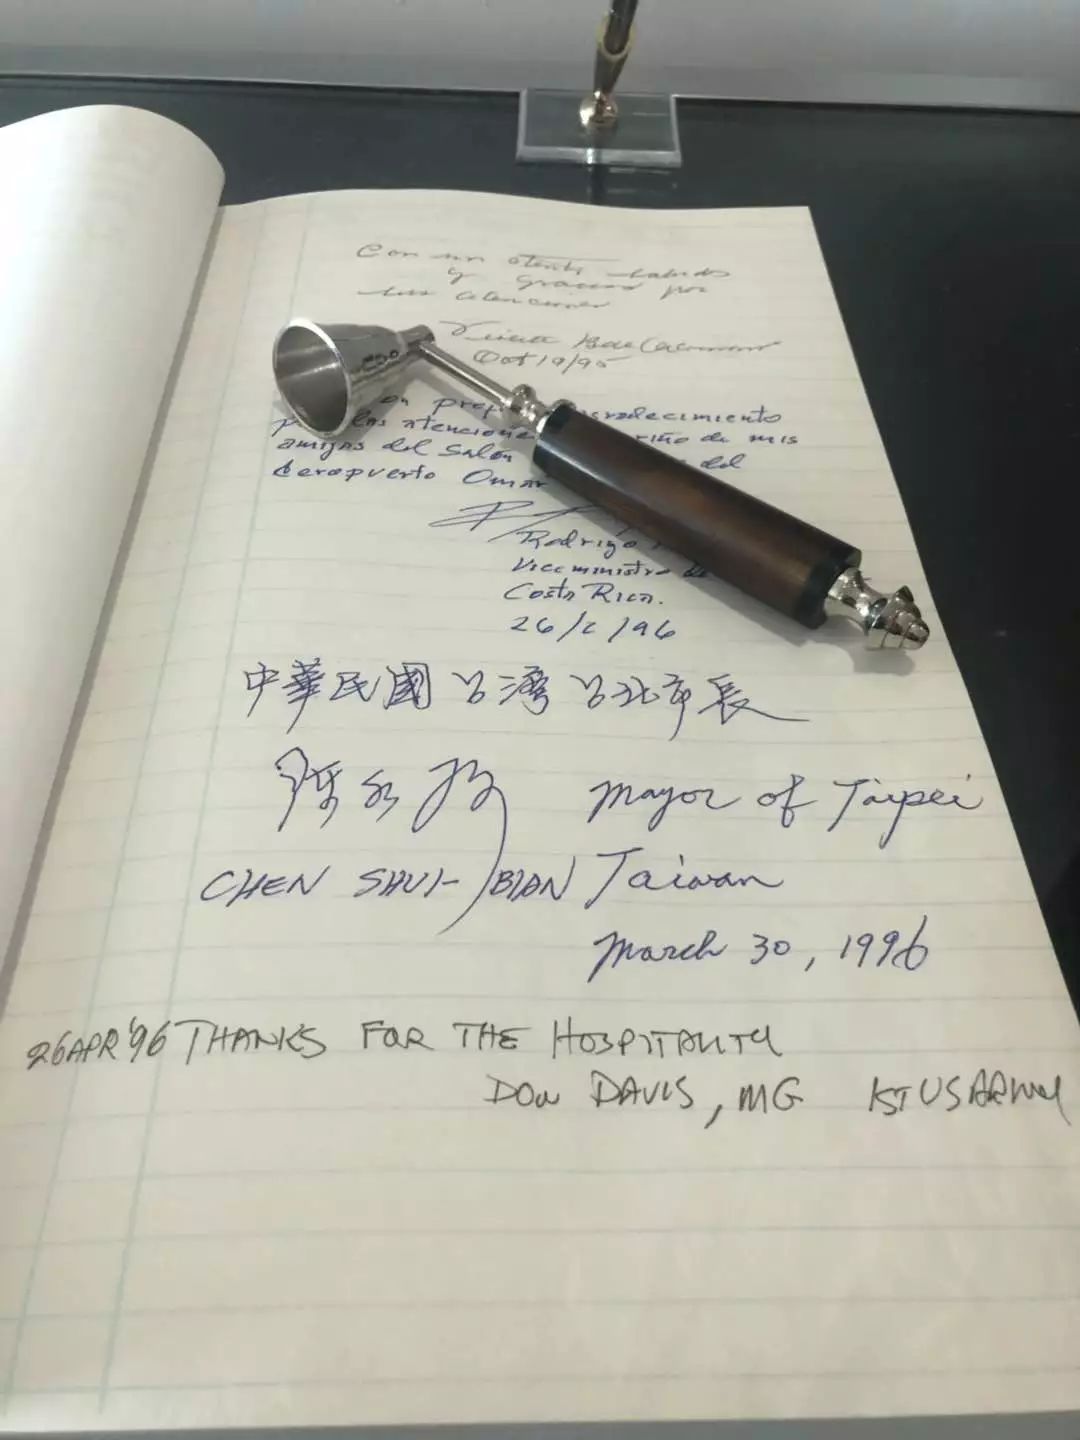 Con un atento saludo
y gracias por
sus atenciones
Oct 19/95
on agradecimiento
las atencione de mis
amigos del Salón del
Aeropuerto Omar
Rodrigo
Viceministro de
Costa Rica.
26/2/96
中華民國 台灣 台北市長
陳水扁 Mayor of Taipei
CHEN SHUI-BIAN Taiwan
March 30, 1996
26 APR '96 THANKS FOR THE HOSPITALITY
DON DAVIS, MG 1ST US ARMY